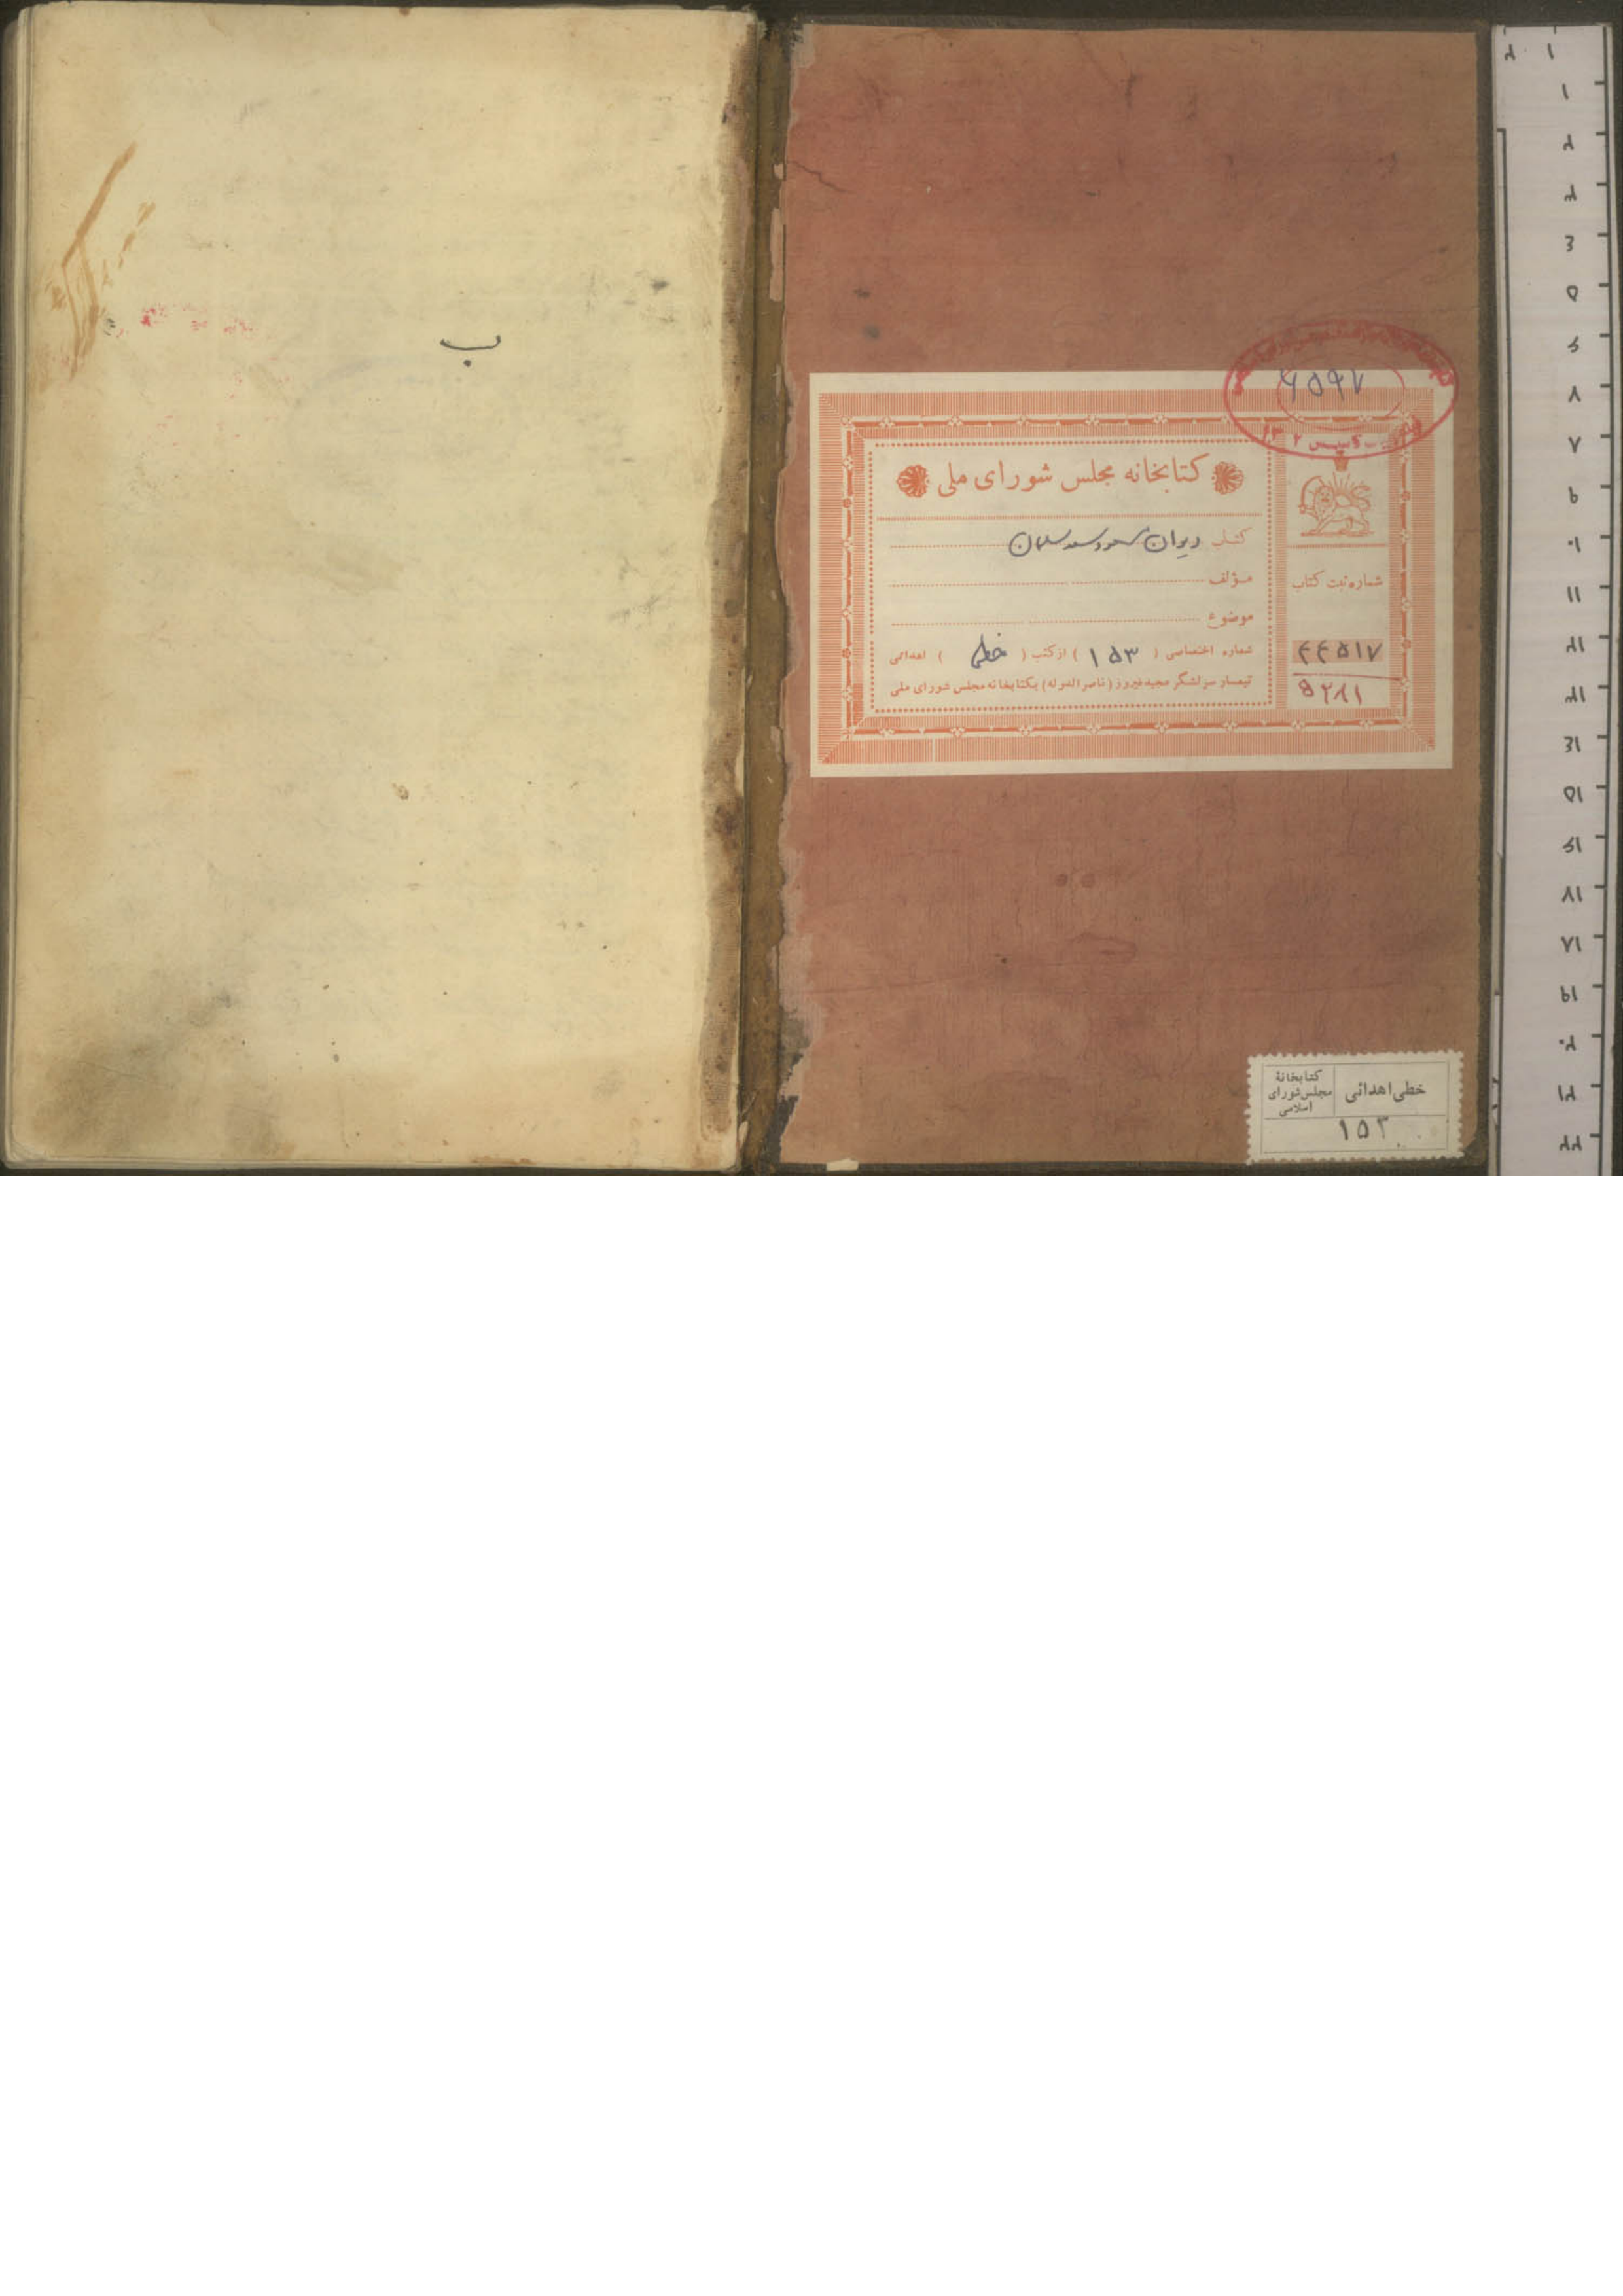 ۶۵۹۷
کتابخانه مجلس شورای ملی
کتاب دیوان مسعود سعد سلمان
مؤلف
موضوع
شماره اختصاصی ( ۱۵۳ ) از کتب ( خطی ) اهدائی
تیمسار سرلشگر مجید فیروز (ناصرالدوله) بکتابخانه مجلس شورای ملی
شماره ثبت کتاب
۴۴۵۱۷
۵۲۸۱
خطی اهدائی
کتابخانهٔ
مجلس شورای
اسلامی
۱۵۳
ب